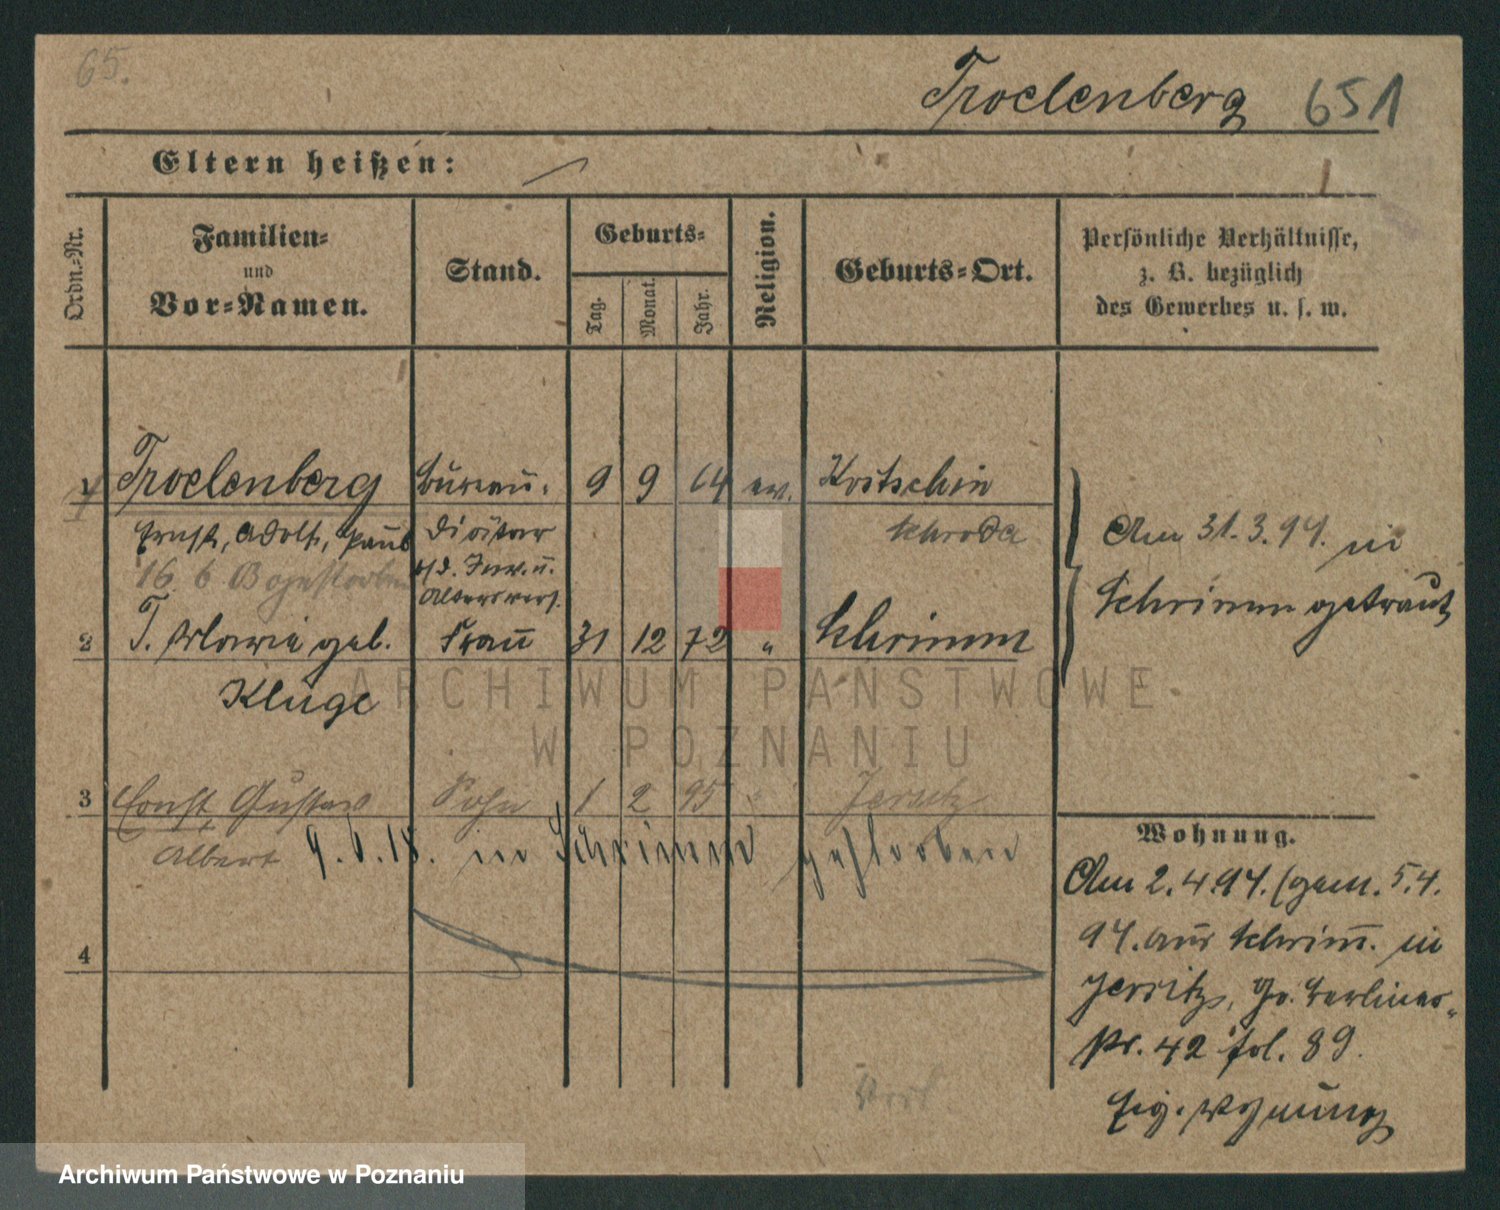 65.
Troelenberg 651
Eltern heißen:
Ordn.-Nr.
Familien-
und
Vor-Namen.
Stand.
Geburts-
Tag.
Monat.
Jahr.
Religion.
Geburts-Ort.
Persönliche Verhältnisse,
z. B. bezüglich
des Gewerbes u. s. w.
1 Troelenberg Büreau- 9 9 64 ev. Kotschin
Ernst, Adolf, Paul Diätar Schroda
16 6 gestorben a/d. Inv. u.
Altersvers.
2 T. Maria geb. Frau 31 12 72 " Schrimm
Kluge
Am 31.3.94. in
Schrimm getraut
3 Ernst, Gustav Sohn 1 2 95 " Jersitz
Albert 9.6.18. in Schrimm gestorben
4
Wohnung.
Am 2.4.94. (gem. 5.4.
94. aus Schrim̄. in
Jersitz, Gr. Berliner-
str. 42 fol. 89.
Eig. Wohnung
ARCHIWUM PAŃSTWOWE
W POZNANIU
Archiwum Państwowe w Poznaniu